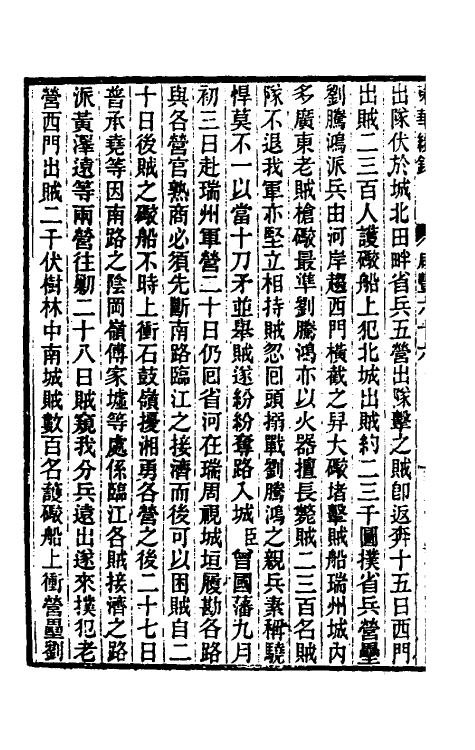 出隊伏於城北田畔省兵五營出隊擊之賊卽返奔十五日西門
出賊二三百人護礮船上犯北城出賊約二三千圖撲省兵營壘
劉騰鴻派兵由河岸趨西門橫截之舁大礮堵擊賊船瑞州城內
多廣東老賊槍礮最準劉騰鴻亦以火器擅長斃賊二三百名賊
隊不退我軍亦堅立相持賊忽囘頭搦戰劉騰鴻之親兵素稱驍
悍莫不一以當十刀矛並舉賊遂紛紛奪路入城臣曾國藩九月
初三日赴瑞州軍營二十日仍囘省河在瑞周視城垣履勘各路
與各營官熟商必須先斷南路臨江之接濟而後可以困賊自二
十日後賊之礮船不時上衝石鼓嶺擾湘勇各營之後二十七日
普承堯等因南路之陰岡嶺傅家墟等處係臨江各賊接濟之路
派黃澤遠等兩營往勦二十八日賊窺我分兵遠出遂來撲犯老
營西門出賊二千伏樹林中南城賊數百名護礮船上衝營壘劉